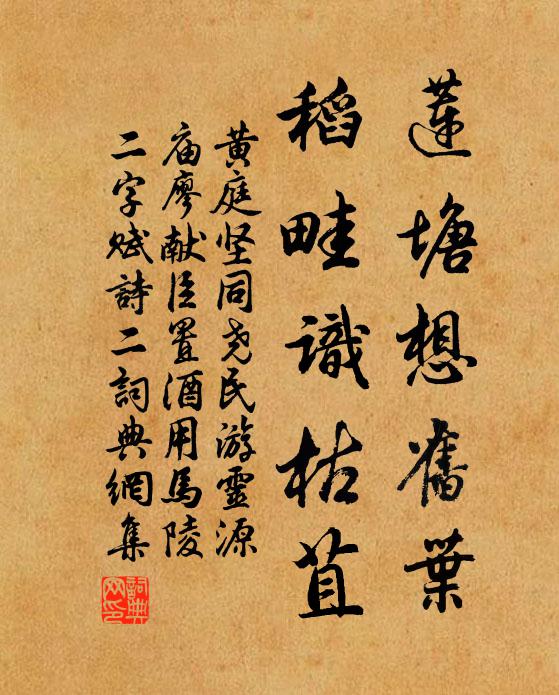 蓮塘想舊葉
稻畦識枯苴
黄庭坚同尧民游靈源
庙廖献臣置酒用馬陵
二字赋詩二詞典網集
詞典
网印